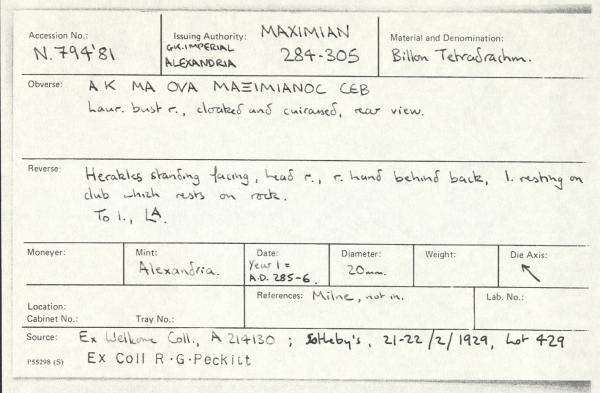 Accession No.:
N.794'81
Issuing Authority: MAXIMIAN
GK.IMPERIAL 284-305
ALEXANDRIA
Material and Denomination:
Billon Tetradrachm.
Obverse: A K MA OVA MAΞIMIANOC CEB
Laur. bust r., cloaked and cuirassed, rear view.
Reverse: Herakles standing facing, head r., r. hand behind back, l. resting on
club which rests on rock.
To l., LA.
Moneyer:
Mint:
Alexandria.
Date:
Year 1 =
A.D. 285-6.
Diameter:
20mm.
Weight:
Die Axis:
↖
Location:
Cabinet No.: Tray No.:
References: Milne, not in.
Lab. No.:
Source: Ex Wellcome Coll., A 214130 ; Sotheby's, 21-22/2/1929, Lot 429
P55298 (S) Ex Coll R.G. Peckitt